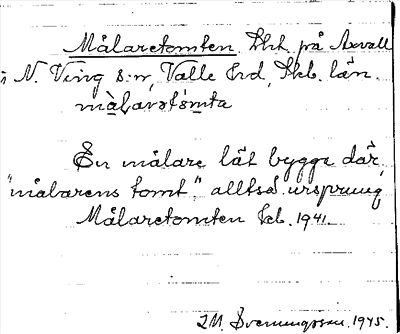 Målaretomten. Lht. på Axvall
i N. Ving s:n, Valle hd, Skb. län.
målarətòmta
En målare lät bygga där,
"målarens tomt", alltså ursprung
Målaretomten Ecb. 1941.
I.M. Svenungsson. 1945.